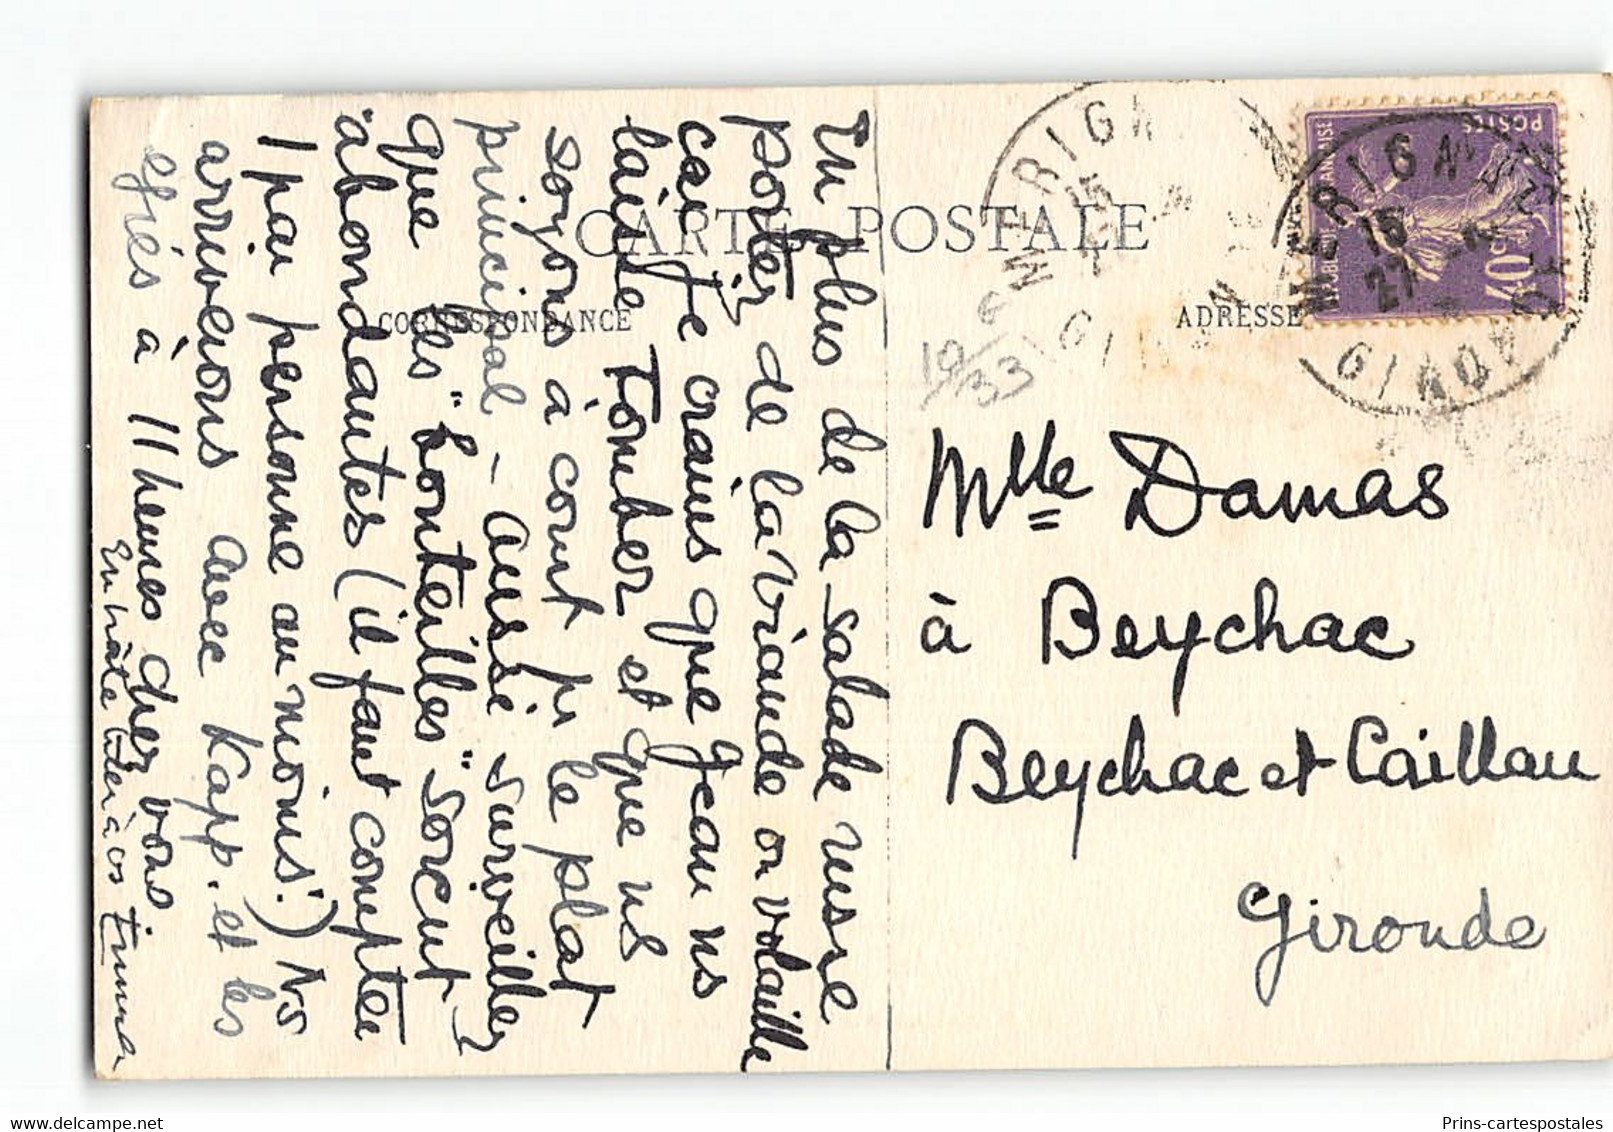 CARTE POSTALE
CORRESPONDANCE
ADRESSE
En plus de la salade russe
porter de la viande ou volaille
car je crains que Jean ns
laisse tomber et que ns
soyons à court pr le plat
principal - Aussi surveiller
que les "bouteilles" soient
abondantes (il faut compter
1 par personne au moins.) Ns
arriverons avec Kapp. et les
à 11 heures chez vous
En hâte à vs Emma
10/33
MERIGNAC
GIRONDE
MERIGNAC
15
27
GIRONDE
POSTES
40c
Mlle Damas
à Beychac
Beychac et Caillau
Gironde
Prins-cartespostales